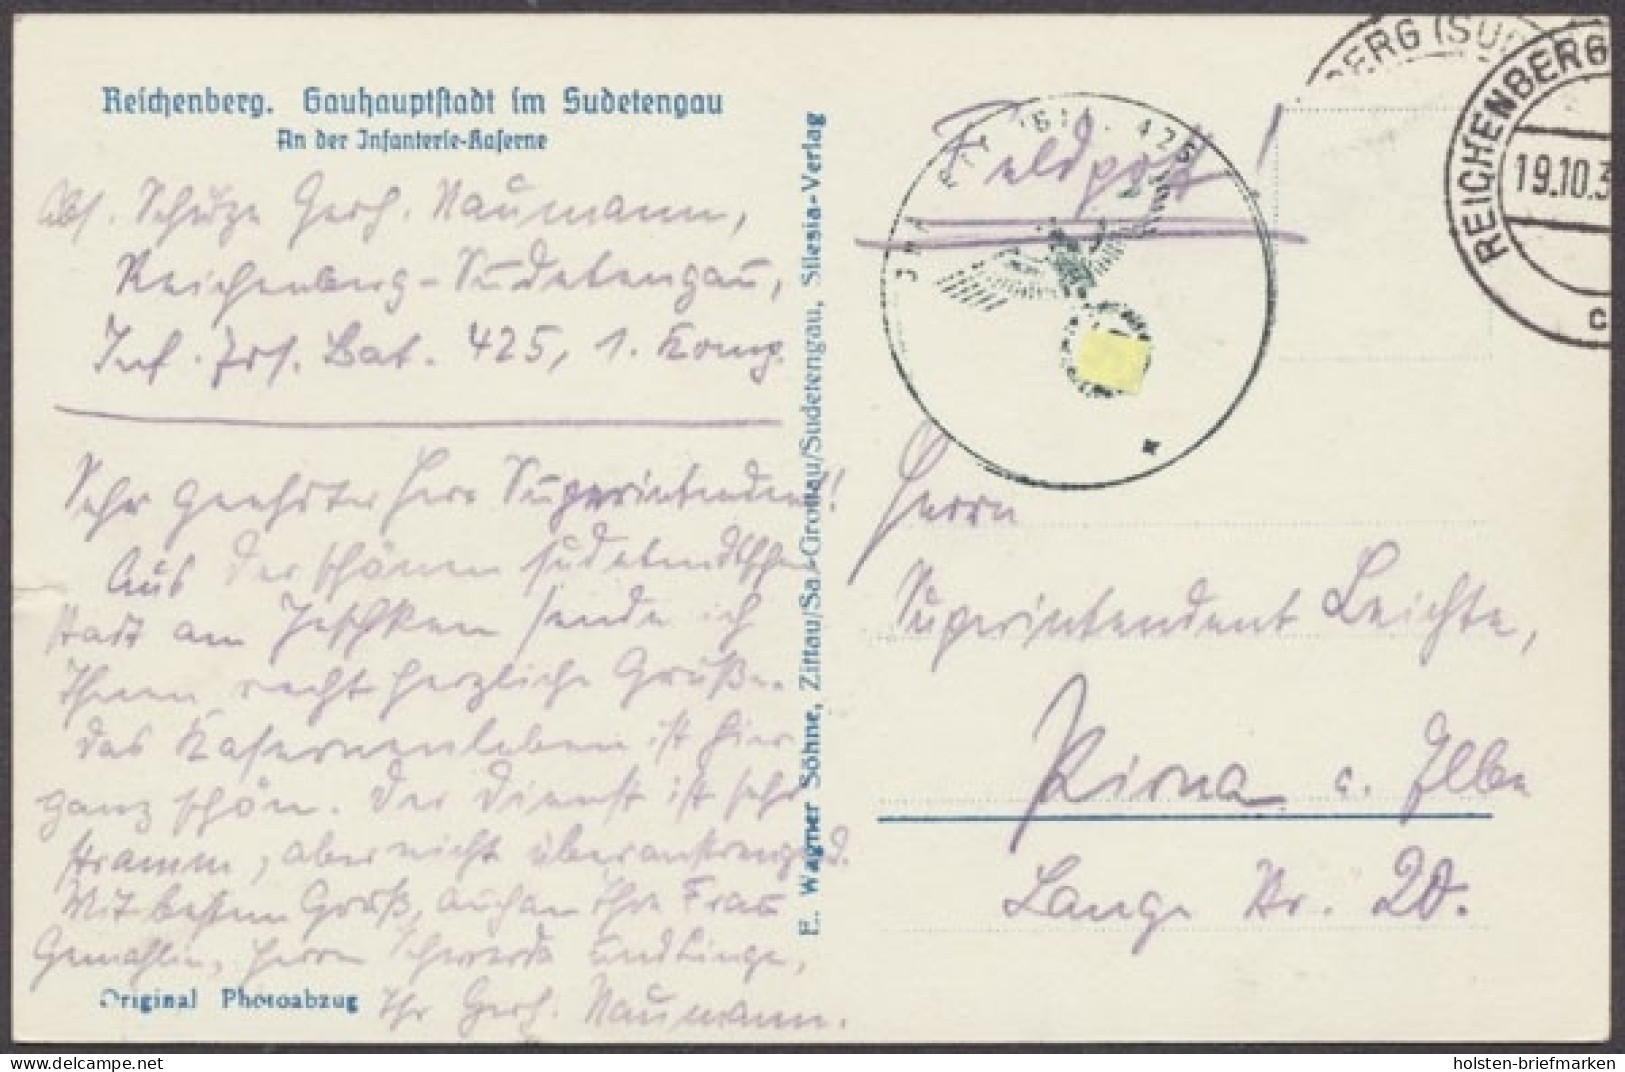 Reichenberg. Gauhauptstadt im Sudetengau
An der Infanterie-Kaserne
Abs. Schütze Gerh. Naumann,
Reichenberg-Sudetengau,
Inf. Ers. Bat. 425, 1. Komp.
Sehr geehrter Herr Superintendent!
Aus der schönen sudetendtschen
Stadt am Jeschken sende ich
Ihnen recht herzliche Grüße.
das Kasernenleben ist hier
ganz schön. Der Dienst ist sehr
stramm, aber nicht überanstrengend.
Mit besten Gruß, auch an Ihre Frau
Gemahlin, Herrn
Ihr Gerh. Naumann.
Original Photoabzug
E. Wagner Söhne, Zittau/Sa.-Grottau/Sudetengau, Silesia-Verlag
Feldpost!
425
BERG (SUD
REICHENBERG
19.10.3
c
Herrn
Superintendent Leichte,
Pirna a. Elbe
Lange Str. 20.
delcampe.net
holsten-briefmarken